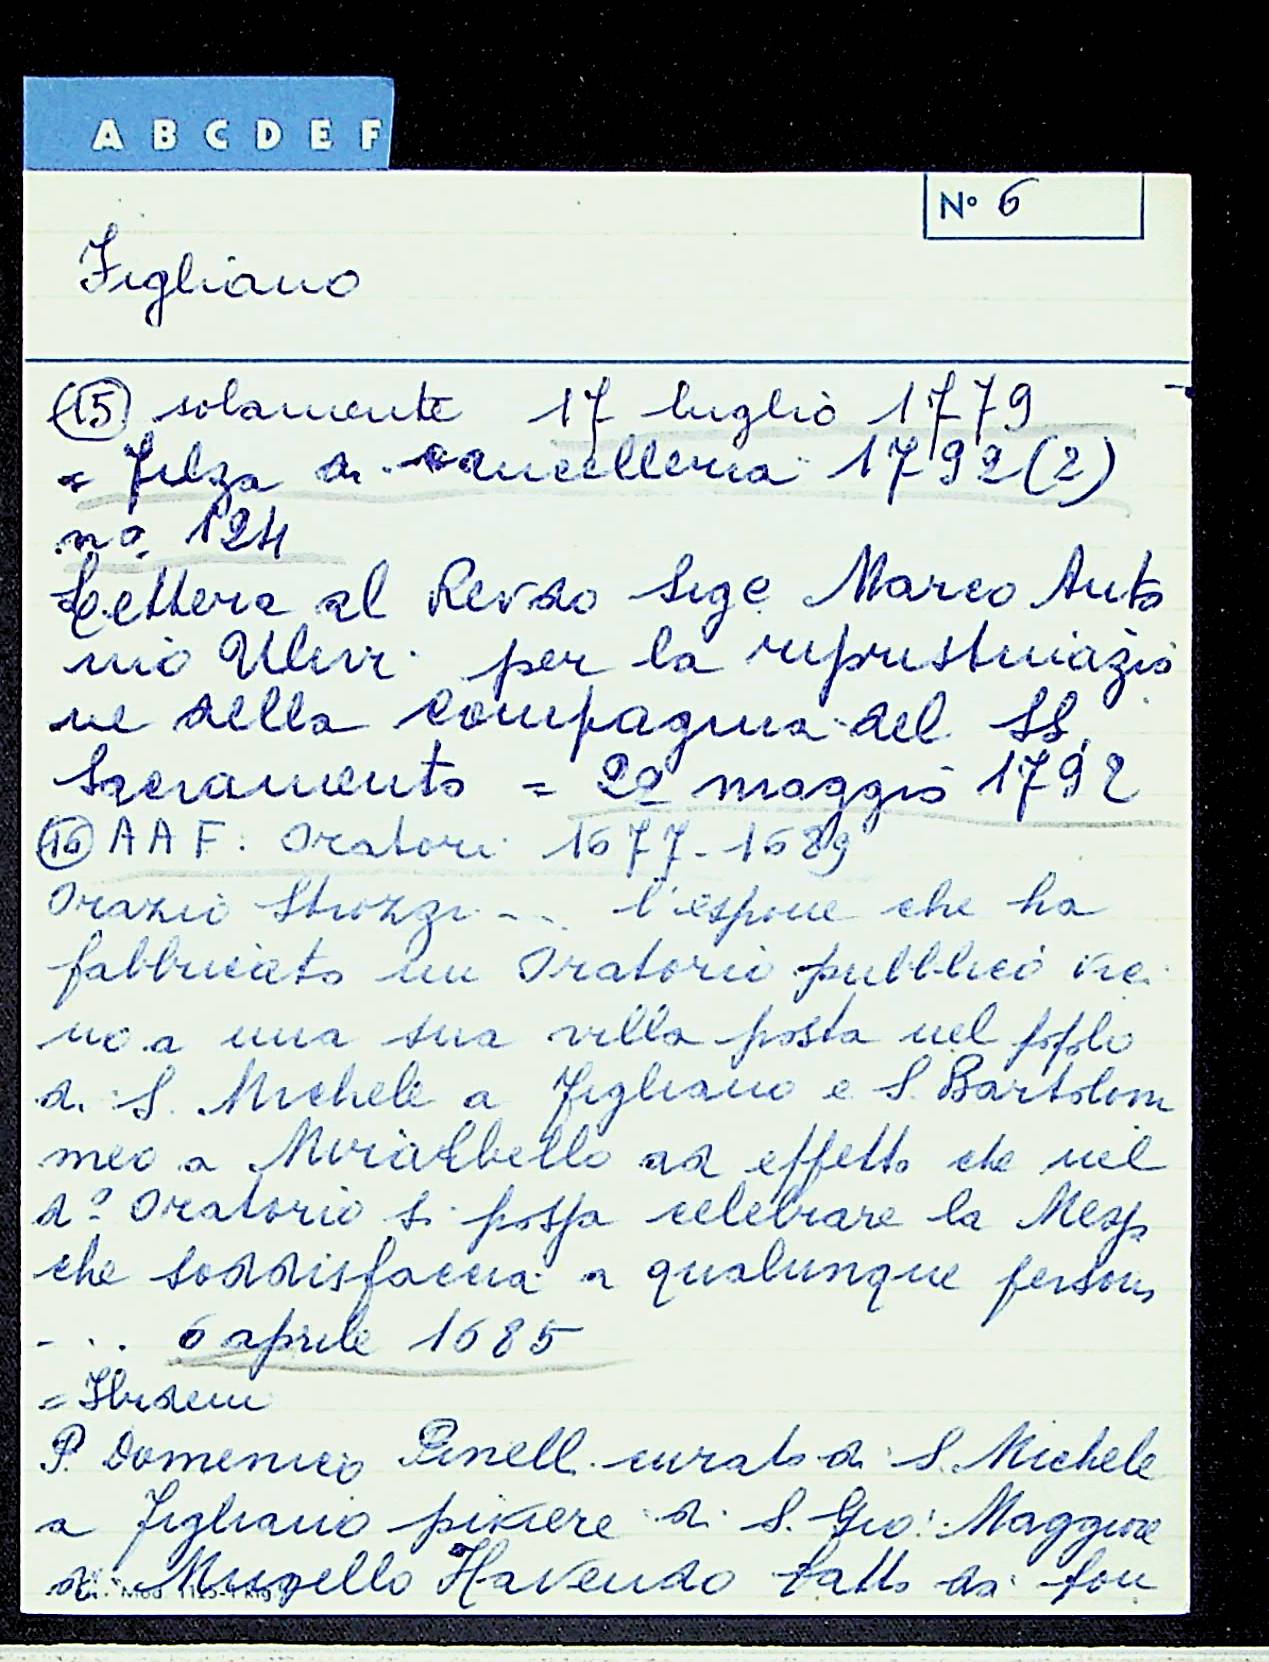 A B C D E F
N° 6
Figliano
(15) solamente 17 luglio 1779
= Filza di cancelleria 1792 (2)
no. 124
Lettera al Revdo Sige Marco Anto
nio Ulivi per la ripristinazio
ne della Compagnia del SS.
Sacramento = 20 maggio 1792
(16) A A F: Oratori 1677-1689
Orazio Strozzi ... l'espone che ha
fabbricato un Oratorio pubblico vici
no a una sua villa posta nel popolo
di S. Michele a Figliano e S. Bartolom
meo a Miralbello ad effetto che nel
d° Oratorio si possa celebrare la Messa
che soddisfaccia a qualunque persona
... 6 aprile 1685
= Ibidem
P. Domenico Pinelli curato di S. Michele
a Figliano piviere di S. Gio: Maggiore
di Mugello Havendo fatto da fon